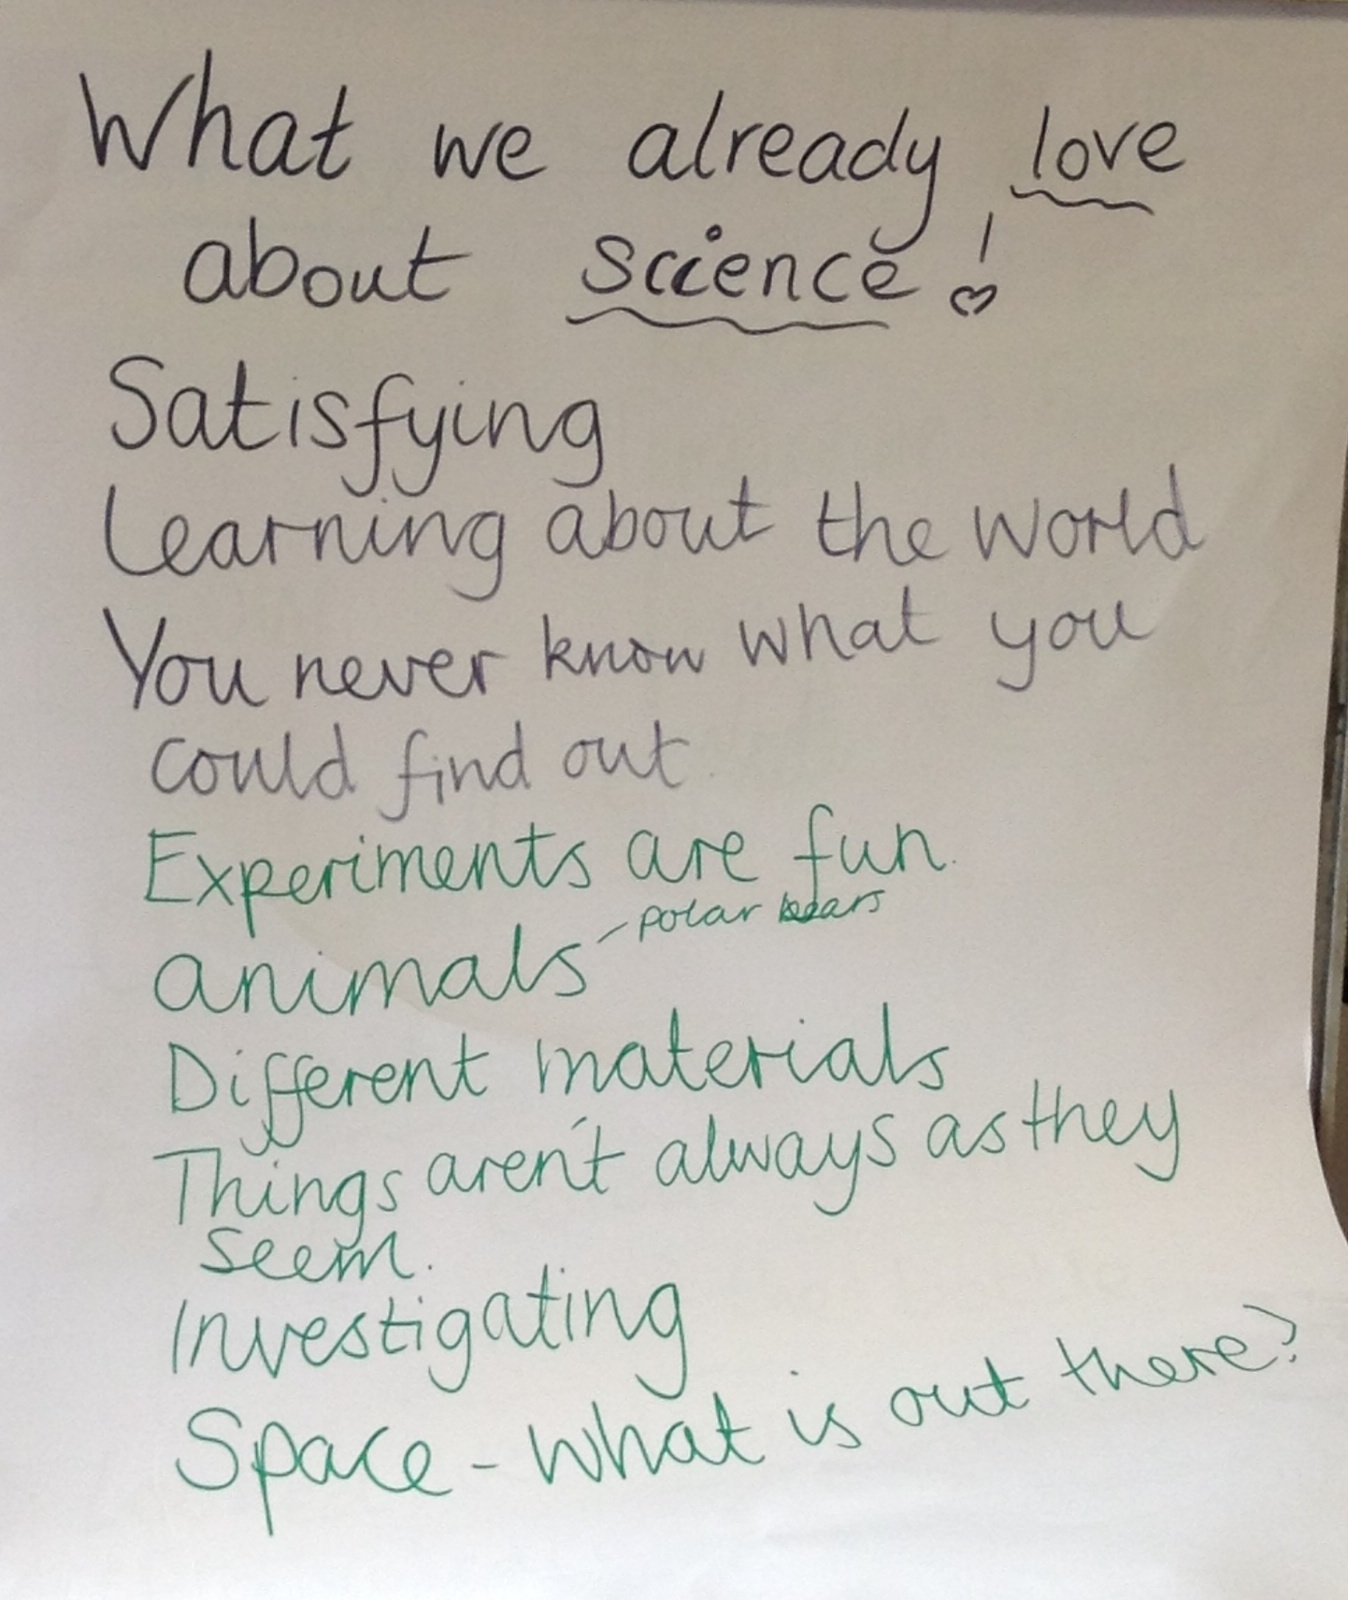 What we already love
about science!
Satisfying
Learning about the world
You never know what you
could find out
Experiments are fun.
animals - polar bears
Different materials
Things aren't always as they
seem.
Investigating
Space - what is out there?